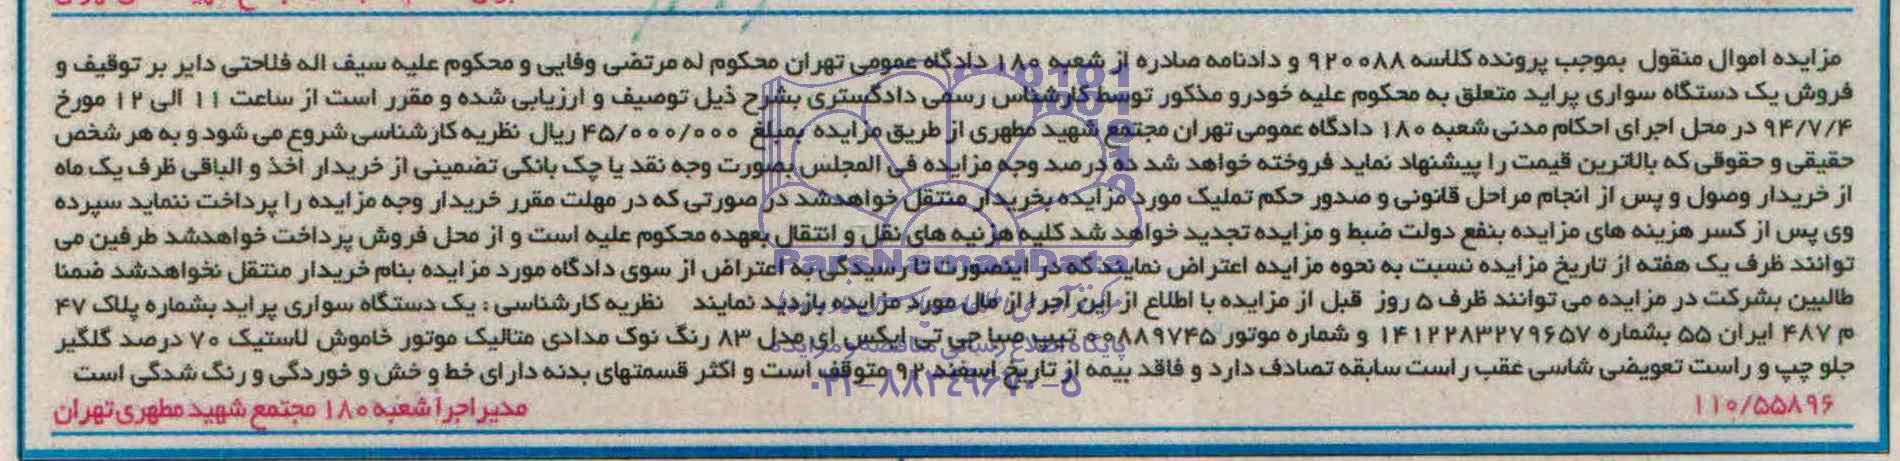 مزایده اموال منقول بموجب پرونده کلاسه ۹۲۰۰۸۸ و دادنامه صادره از شعبه ۱۸۰ دادگاه عمومی تهران محکوم له مرتضی وفایی و محکوم علیه سیف اله فلاحتی دایر بر توقیف و
فروش یک دستگاه سواری پراید متعلق به محکوم علیه خودرو مذکور توسط کارشناس رسمی دادگستری بشرح ذیل توصیف و ارزیابی شده و مقرر است از ساعت ۱۱ الی ۱۲ مورخ
۹۴/۷/۴ در محل اجرای احکام مدنی شعبه ۱۸۰ دادگاه عمومی تهران مجتمع شهید مطهری از طریق مزایده بمبلغ ۴۵/۰۰۰/۰۰۰ ریال نظریه کارشناسی شروع می شود و به هر شخص
حقیقی و حقوقی که بالاترین قیمت را پیشنهاد نماید فروخته خواهد شد ده درصد وجه مزایده فی المجلس بصورت وجه نقد یا چک بانکی تضمینی از خریدار اخذ و الباقی ظرف یک ماه
از خریدار وصول و پس از انجام مراحل قانونی و صدور حکم تملیک مورد مزایده بخریدار منتقل خواهدشد در صورتی که در مهلت مقرر خریدار وجه مزایده را پرداخت ننماید سپرده
وی پس از کسر هزینه های مزایده بنفع دولت ضبط و مزایده تجدید خواهد شد کلیه هزنیه های نقل و انتقال بعهده محکوم علیه است و از محل فروش پرداخت خواهدشد طرفین می
توانند ظرف یک هفته از تاریخ مزایده نسبت به نحوه مزایده اعتراض نمایند که در اینصورت تا رسیدگی به اعتراض از سوی دادگاه مورد مزایده بنام خریدار منتقل نخواهدشد ضمنا
طالبین بشرکت در مزایده می توانند ظرف ۵ روز قبل از مزایده با اطلاع از این اجرا از مال مورد مزایده بازدید نمایند نظریه کارشناسی : یک دستگاه سواری پراید بشماره پلاک ۴۷
م ۴۸۷ ایران ۵۵ بشماره ۱۴۱۲۲۸۳۲۷۹۶۵۷ و شماره موتور ۰۰۸۸۹۷۴۵ تیپ صبا جی تی ایکس ای مدل ۸۳ رنگ نوک مدادی متالیک موتور خاموش لاستیک ۷۰ درصد گلگیر
جلو چپ و راست تعویضی شاسی عقب راست سابقه تصادف دارد و فاقد بیمه از تاریخ اسفند ۹۲ متوقف است و اکثر قسمتهای بدنه دارای خط و خش و خوردگی و رنگ شدگی است
۱۱۰/۵۵۸۹۶
مدیر اجرا شعبه ۱۸۰ مجتمع شهید مطهری تهران
ParsNamadData
پایگاه اطلاع رسانی مناقصه و مزایده
۰۲۱-۸۸۳۴۹۶۷۰-۵